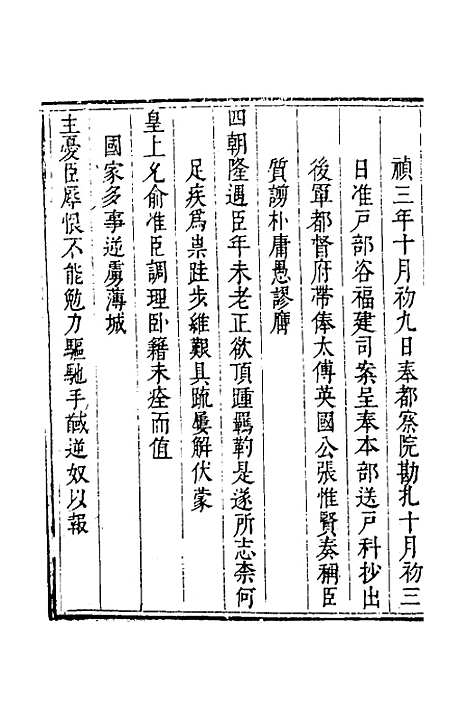 禎三年十月初九日奉都察院勘扎十月初三
日准戶部咨福建司案呈奉本部送戶科抄出
後軍都督府帶俸太傅英國公張惟賢奏稱臣
質謭朴庸愚謬膺
四朝隆遇臣年未老正欲頂踵羈靮是遂所志柰何
足疾爲祟跬步維艱具疏屢解伏蒙
皇上允俞准臣調理卧籍未痊而值
國家多事逆虜薄城
主憂臣辱恨不能勉力驅馳手馘逆奴以報